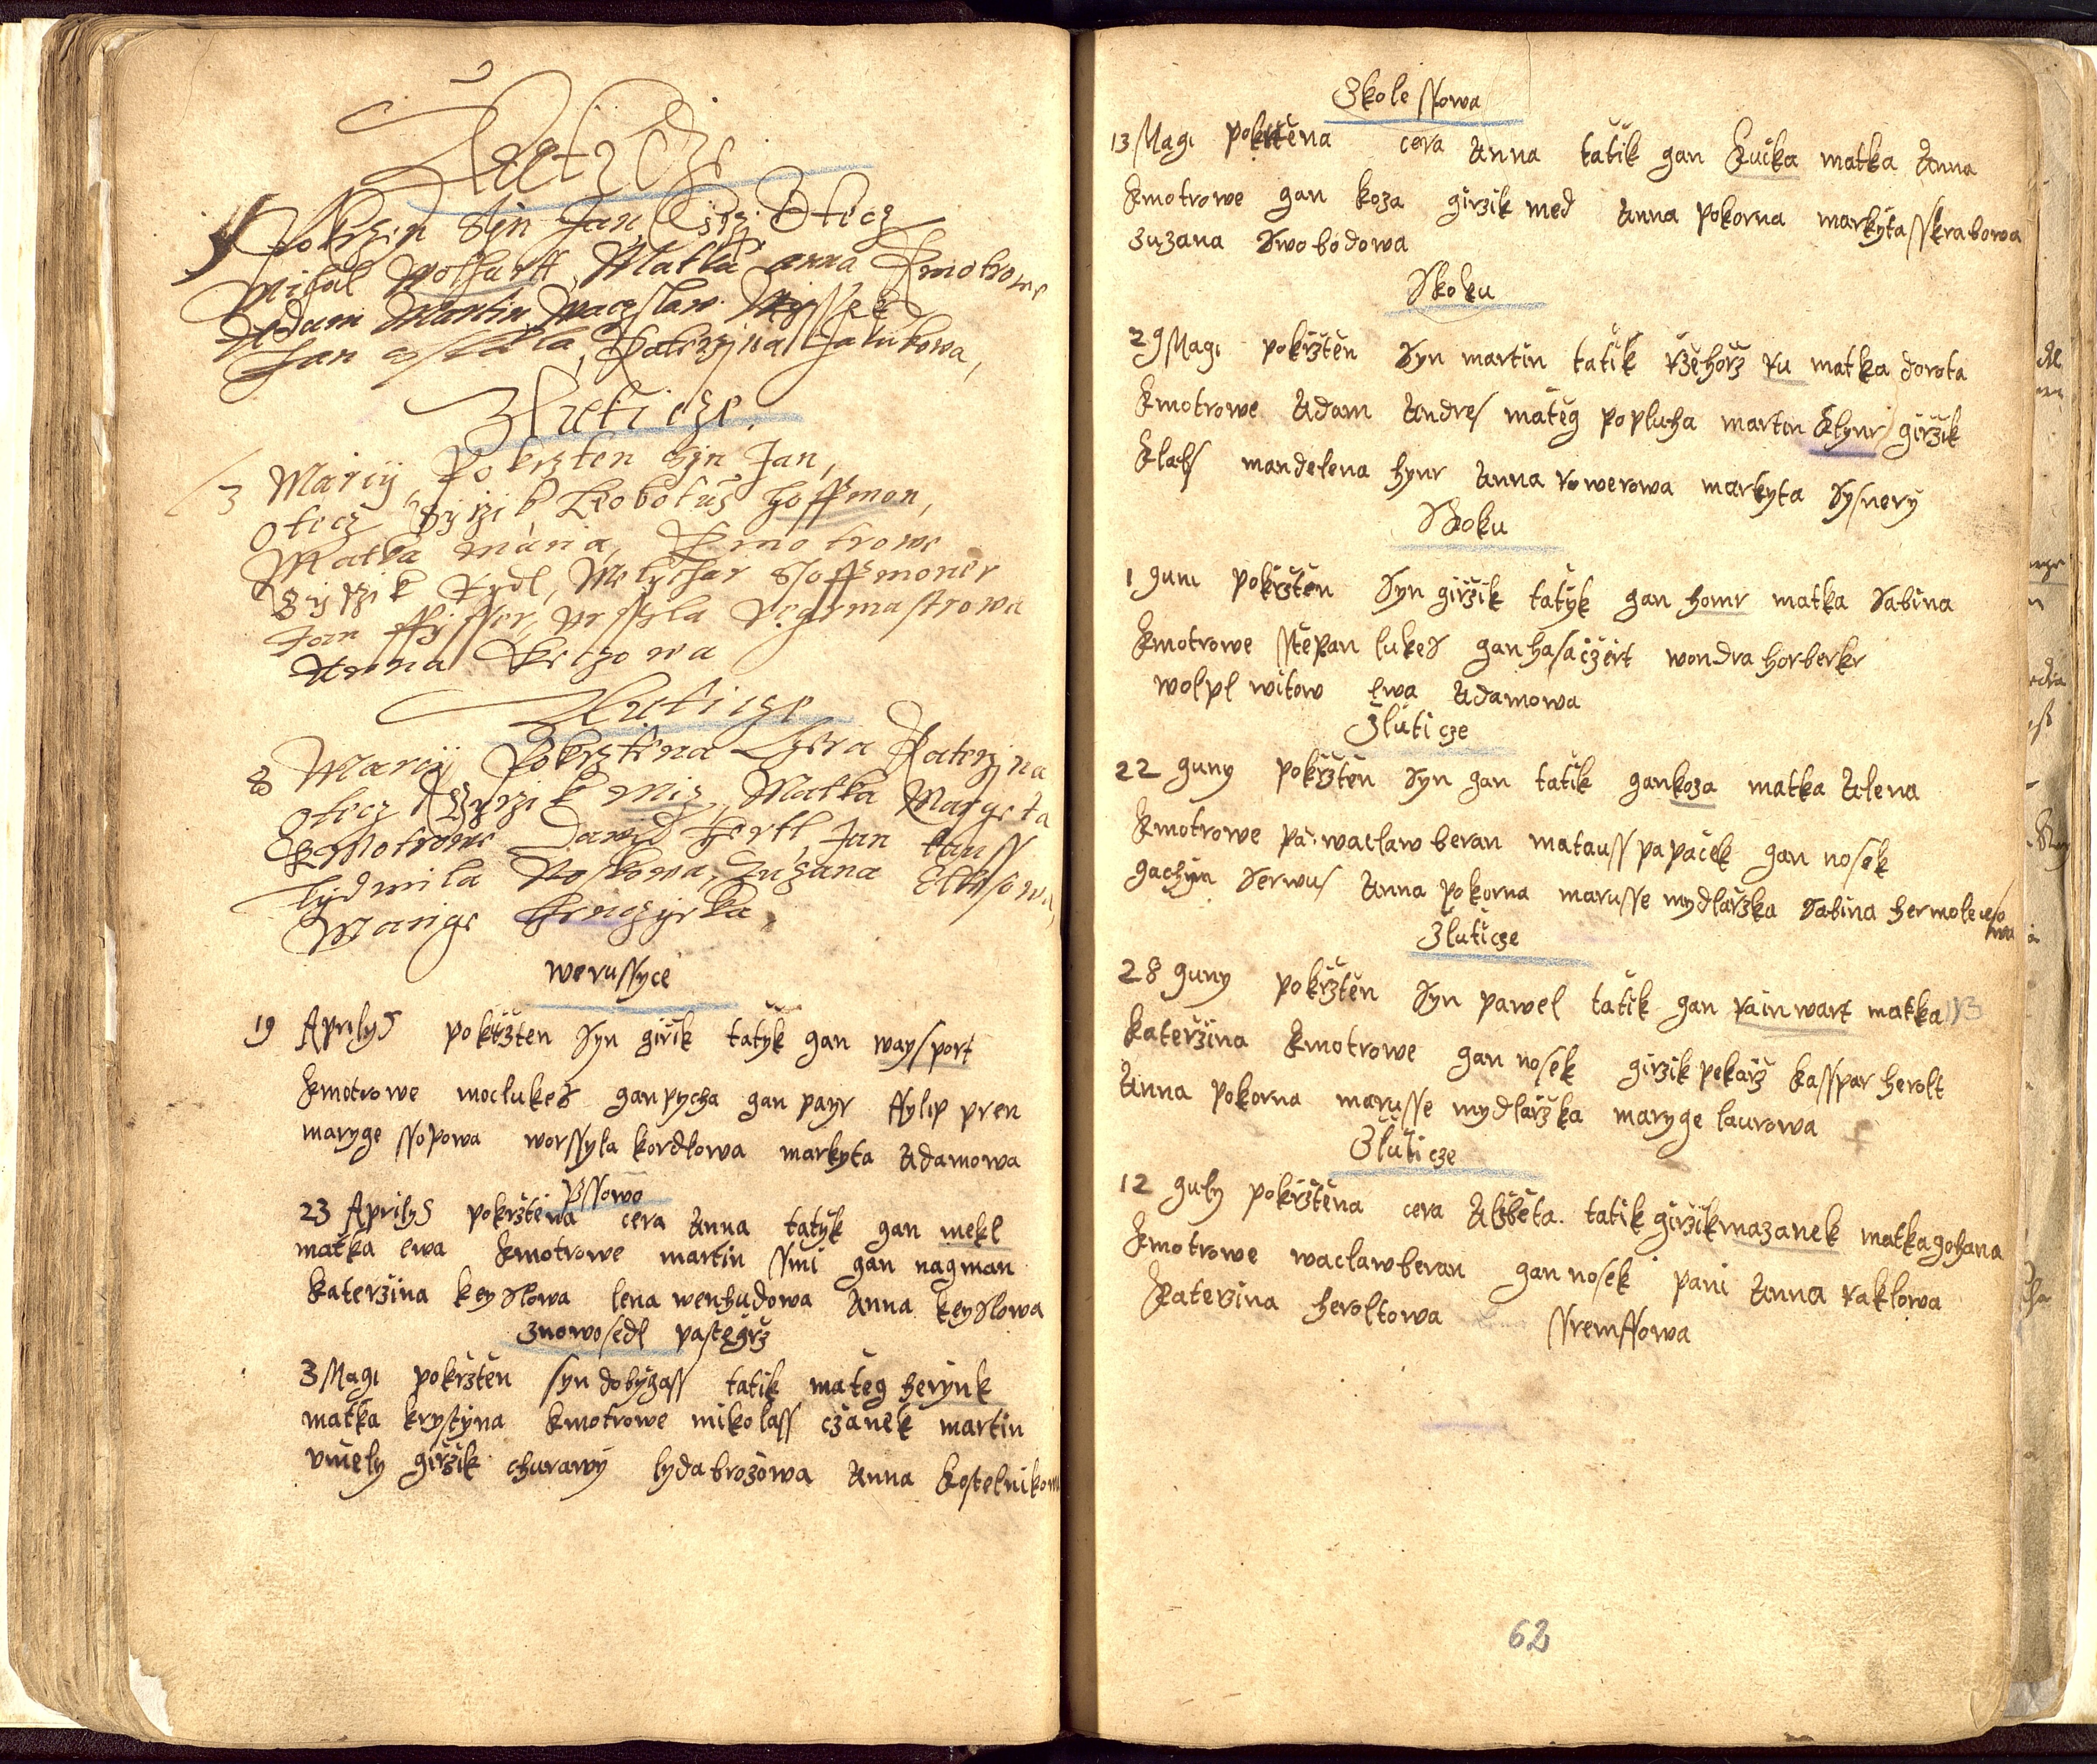 Pokrzin Syn Jan, Otecz
Michal Wolfartt, Matka anna Kmotrowe
Adam Martin, Waczslaw
Jan, Katerzyna Jakubowa,
Zluticze.
13 Marcij, Pokrzten Syn Jan,
otecz Girzik hoffmon,
Matka maria, Kmotrowe
Girzik Rydl, Melychar Hoffmoner
Jan ffisser,
Anna
Zluticze
8 Marcij Pokrztena Czera Katerzyna
otecz Girzik Matka Margeta
Kmotrowe Dawid hertl, Jan
Lydmila Zuzana
Marige
werussyce
19 Aprilys pokrzten Syn girik tatyk gan waysport
kmotrowe moclukes gan pycha gan payr ffylip pren
maryge ssopowa worssyla kordlowa markyta Adamowa
pssowo
23 Aprilys pokrztena cera Anna tatyk gan mekl
matka ewa kmotrowe martin smi gan nagman
katerzina keyslowa lena wenhudowa Anna keyslowa
znowosedl pastegrz
3 Magi pokrzten syn dobygass tatik mateg herynk
matka krystyna kmotrowe mikolass czanek martin
vmely girzik churawy lyda brozowa Anna kostelnikowa
Zkolessowa
13 Magi pokrztena cera Anna tatik gan kucka matka Anna
kmotrowe gan koza girzik med Anna pokorna markyta sskrabowa
zuzana Swobodowa
Skoku
29 Magi pokrzten Syn martin tatik rzehorz ru matka dorota
kmotrowe Adam Andres mateg poplucha martin klynr girzik
klabs mandelena hynr Anna rowerowa markyta Sysnery
Skoku
1 guni pokrzten Syn girzik tatyk gan homr matka Sabina
kmotrowe sstepan lukes gan hasaczert wondra horberkr
wolpl witow Ewa Adamowa
Zluticze
22 guny pokrzten Syn gan tatik gan koza matka Alena
kmotrowe pa: waclaw beran matauss papacek gan nosek
gachym Serwus Anna pokorna marusse mydlarzka Sabina
Zluticze
28 guny pokrzten Syn pawel tatik gan rainwart matka
katerzina kmotrowe gan nosek girzik pekarz kasspar herolt
Anna pokorna marusse mydlarzka maryge laurowa
Zluticze
12 guly pokrztena cera Alzbeta. tatik girzik mazanek matka gohana
kmotrowe waclaw beran gan nosek pani Anna raklowa
katerzina heroltowa ssremssowa
62